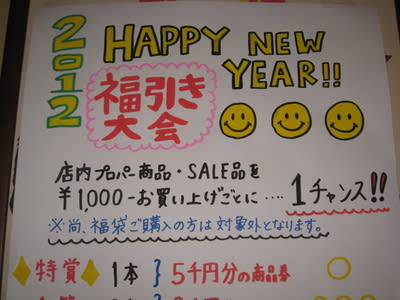 2012
HAPPY NEW
YEAR!!
福引き
大会
店内プロパー商品・SALE品を
¥1,000-お買い上げごとに‥‥1チャンス!!
※尚、福袋ご購入の方は対象外となります。
特賞 1本 } 5千円分の商品券